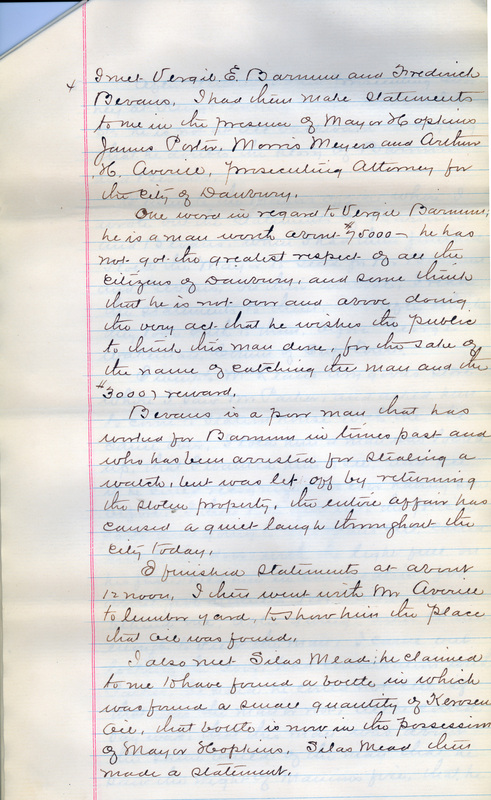 4
I met Vergil E. Barnum and Fredrick
Bevans. I had them make statements
to me in the presence of Mayor Hopkins
James Porter, Morris Meyers and Arthur
H. Averill, Prosecuting Attorney for
the city of Danbury.
One word in regard to Vergil Barnum;
he is a man worth about $75000 he has
not got the greatest respect of all the
Citizens of Danbury, and some think
that he is not over and above doing
the very act that he wishes the public
to think this man done, for the sake of
the name of catching the man and the
$3000 reward.
Bevans is a poor man that has
worked for Barnum in times past and
who has been arrested for stealing a
watch, but was let off by returning
the stolen property, the entire affair has
caused a quiet laugh throughout the
city today.
I finished statements at about
12 noon, I then went with Mr Averill
to lumber yard, to show him the place
that oil was found.
I also met Silas Mead; he claimed
to me to have found a bottle in which
was found a small quantity of Kerosene
oil, that bottle is now in the possession
of Mayor Hopkins. Silas Mead then
made a statement.